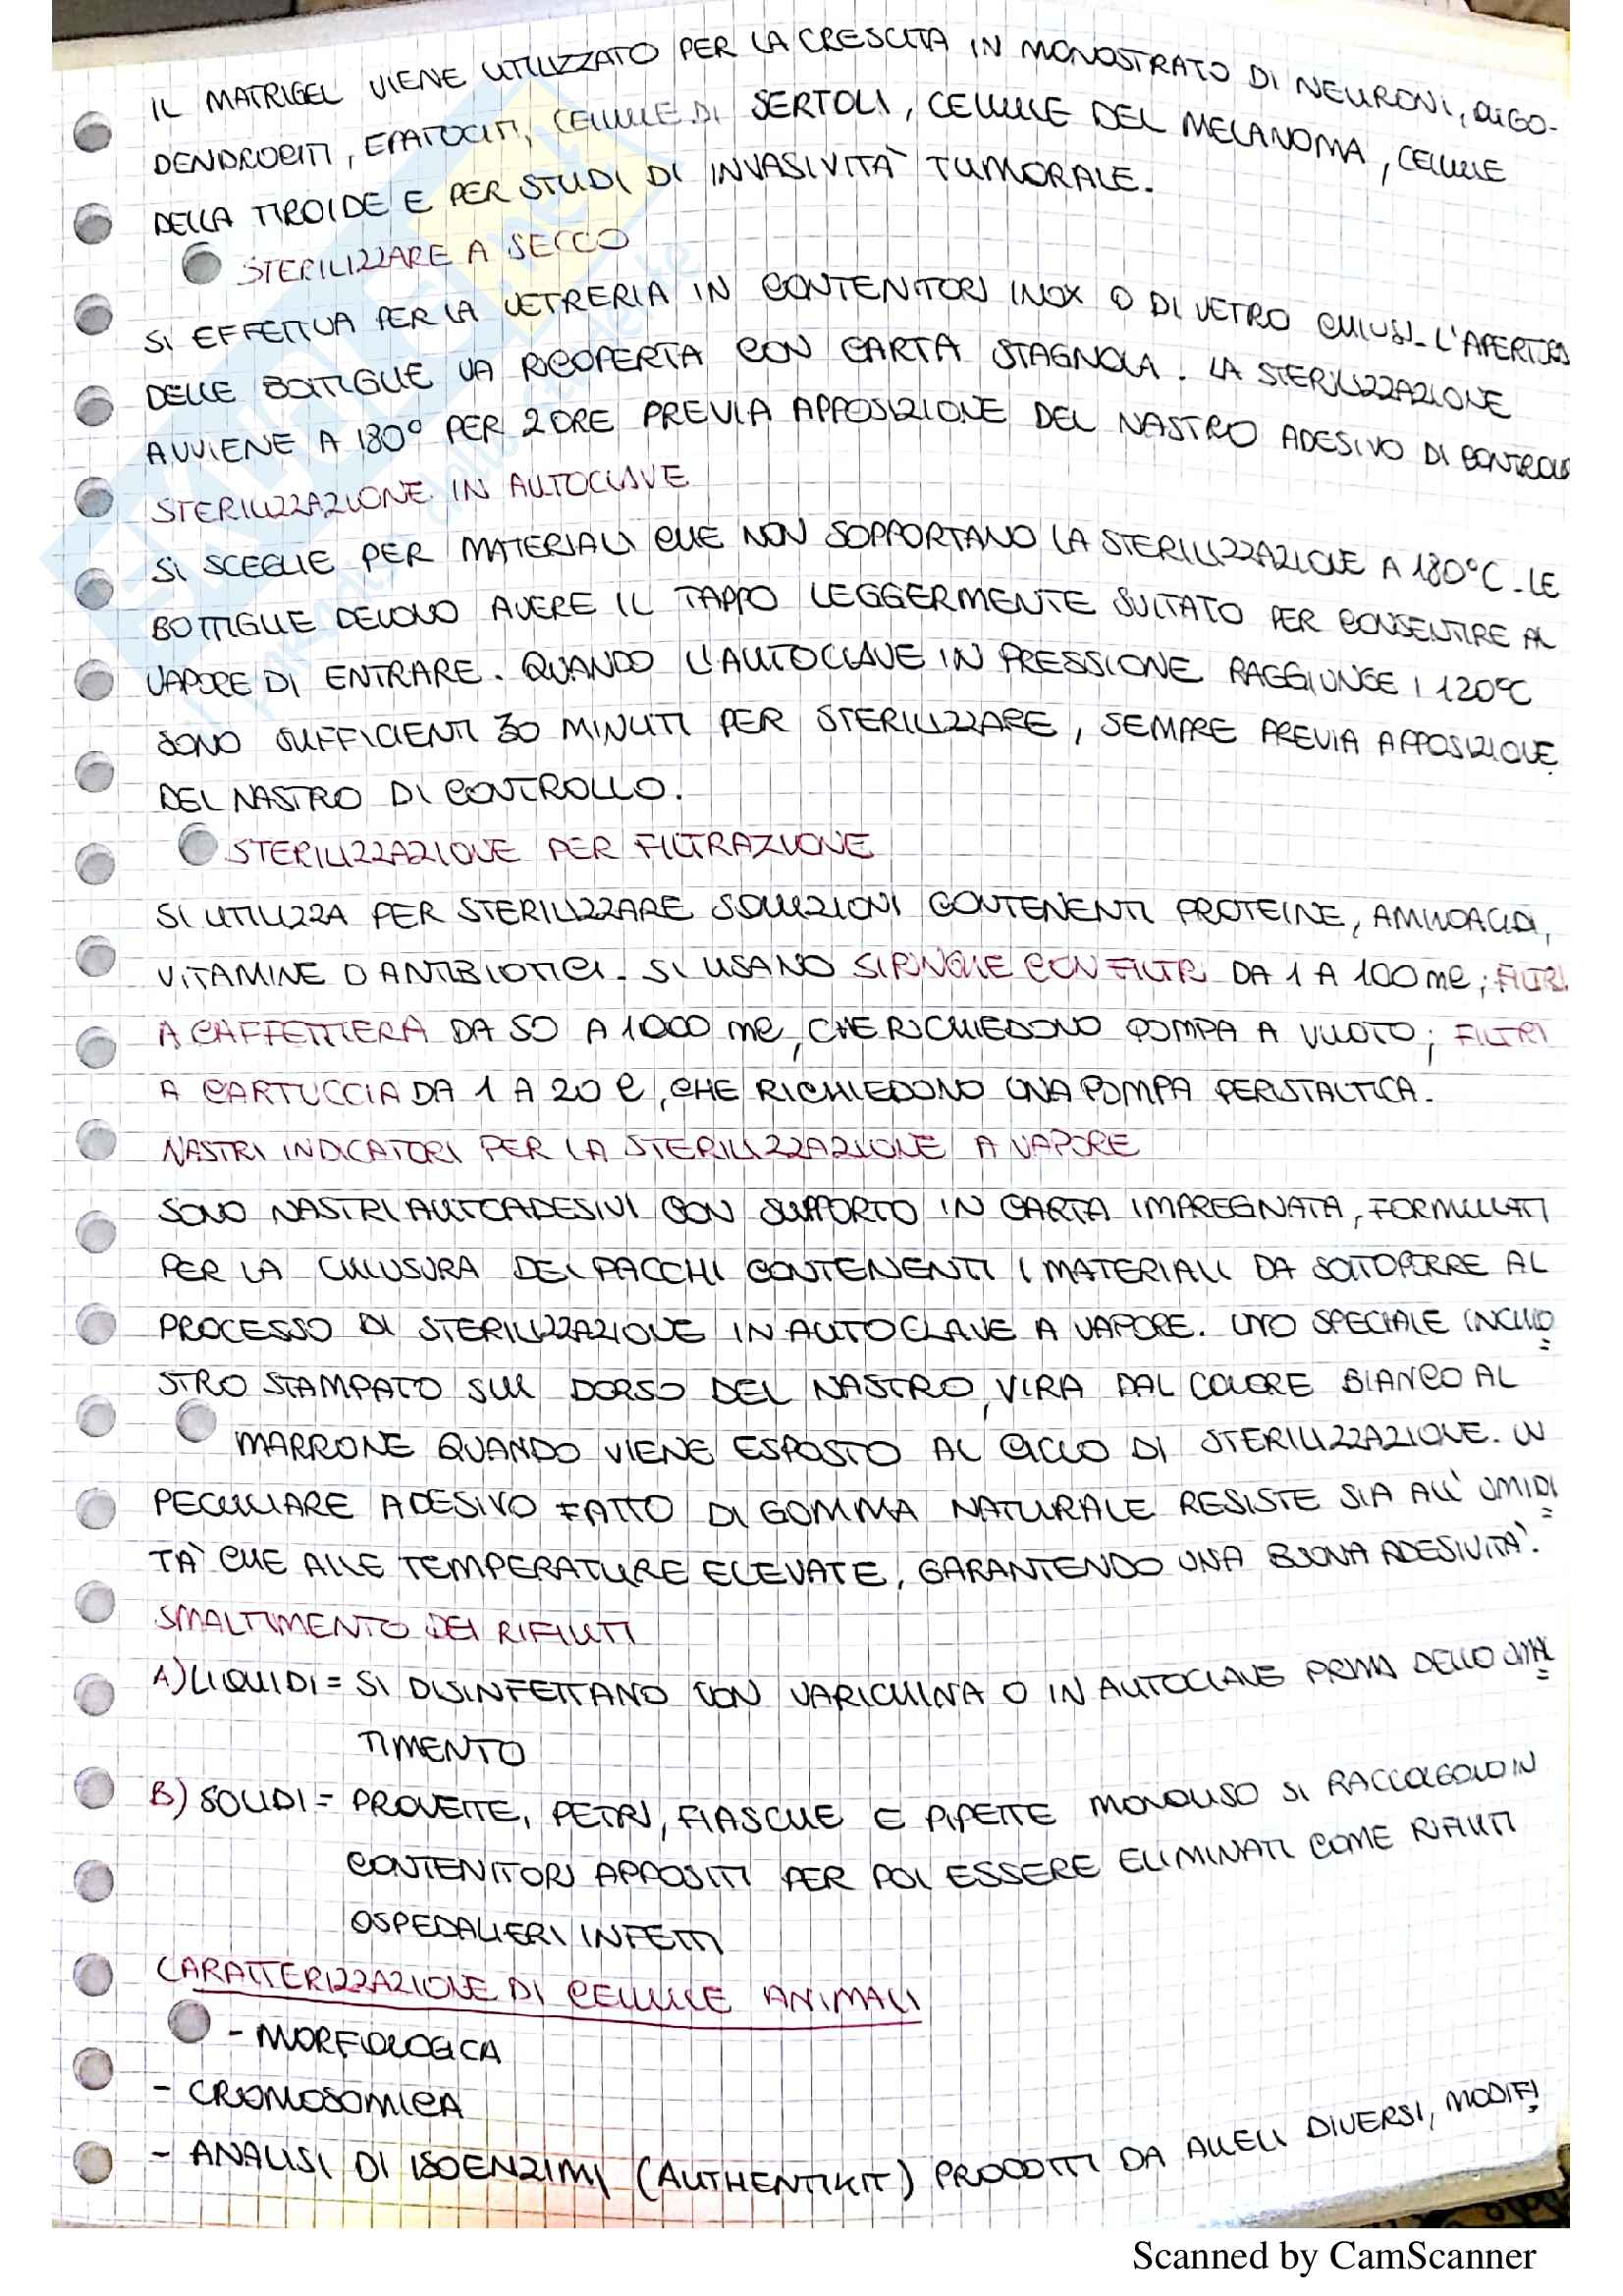 IL MATRIGEL VIENE UTILIZZATO PER LA CRESCITA IN MONOSTRATO DI NEURONI, OLIGO-
DENDROCITI, EPATOCITI, CELLULE DI SERTOLI, CELLULE DEL MELANOMA, CELLULE
DELLA TIROIDE E PER STUDI DI INVASIVITÀ TUMORALE.
STERILIZZARE A SECCO
SI EFFETTUA PER LA VETRERIA IN CONTENITORI INOX O DI VETRO CHIUSI. L'APERTURA
DELLE BOTTIGLIE VA RICOPERTA CON CARTA STAGNOLA. LA STERILIZZAZIONE
AVVIENE A 180° PER 2 ORE PREVIA APPOSIZIONE DEL NASTRO ADESIVO DI CONTROLLO
STERILIZZAZIONE IN AUTOCLAVE
SI SCEGLIE PER MATERIALI CHE NON SOPPORTANO LA STERILIZZAZIONE A 180°C. LE
BOTTIGLIE DEVONO AVERE IL TAPPO LEGGERMENTE SVITATO PER CONSENTIRE AL
VAPORE DI ENTRARE. QUANDO L'AUTOCLAVE IN PRESSIONE RAGGIUNGE I 120°C
SONO SUFFICIENTI 30 MINUTI PER STERILIZZARE, SEMPRE PREVIA APPOSIZIONE
DEL NASTRO DI CONTROLLO.
STERILIZZAZIONE PER FILTRAZIONE
SI UTILIZZA PER STERILIZZARE SOLUZIONI CONTENENTI PROTEINE, AMINOACIDI,
VITAMINE O ANTIBIOTICI. SI USANO SIRINGHE CON FILTRI DA 1 A 100 ml; FILTRI
A CAFFETTIERA DA 50 A 1000 ml, CHE RICHIEDONO POMPA A VUOTO; FILTRI
A CARTUCCIA DA 1 A 20 l, CHE RICHIEDONO UNA POMPA PERISTALTICA.
NASTRI INDICATORI PER LA STERILIZZAZIONE A VAPORE
SONO NASTRI AUTOADESIVI CON SUPPORTO IN CARTA IMPREGNATA, FORMULATI
PER LA CHIUSURA DEI PACCHI CONTENENTI I MATERIALI DA SOTTOPORRE AL
PROCESSO DI STERILIZZAZIONE IN AUTOCLAVE A VAPORE. UNO SPECIALE INCHIO
STRO STAMPATO SUL DORSO DEL NASTRO, VIRA DAL COLORE BIANCO AL
MARRONE QUANDO VIENE ESPOSTO AL CICLO DI STERILIZZAZIONE. UN
PECULIARE ADESIVO FATTO DI GOMMA NATURALE RESISTE SIA ALL'UMIDI
TÀ CHE ALLE TEMPERATURE ELEVATE, GARANTENDO UNA BUONA ADESIVITÀ.
SMALTIMENTO DEI RIFIUTI
A) LIQUIDI = SI DISINFETTANO CON VARICHINA O IN AUTOCLAVE PRIMA DELLO SMAL
TIMENTO
B) SOLIDI = PROVETTE, PETRI, FIASCHE E PIPETTE MONOUSO SI RACCOLGONO IN
CONTENITORI APPOSITI PER POI ESSERE ELIMINATI COME RIFIUTI
OSPEDALIERI INFETTI
CARATTERIZZAZIONE DI CELLULE ANIMALI
- MORFOLOGICA
- CROMOSOMICA
- ANALISI DI ISOENZIMI (AUTHENTIKIT) PRODOTTI DA ALLELI DIVERSI, MODIFI
Scanned by CamScanner